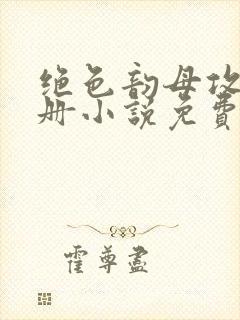 绝色韵母攻
册小说免费
霍尊尽